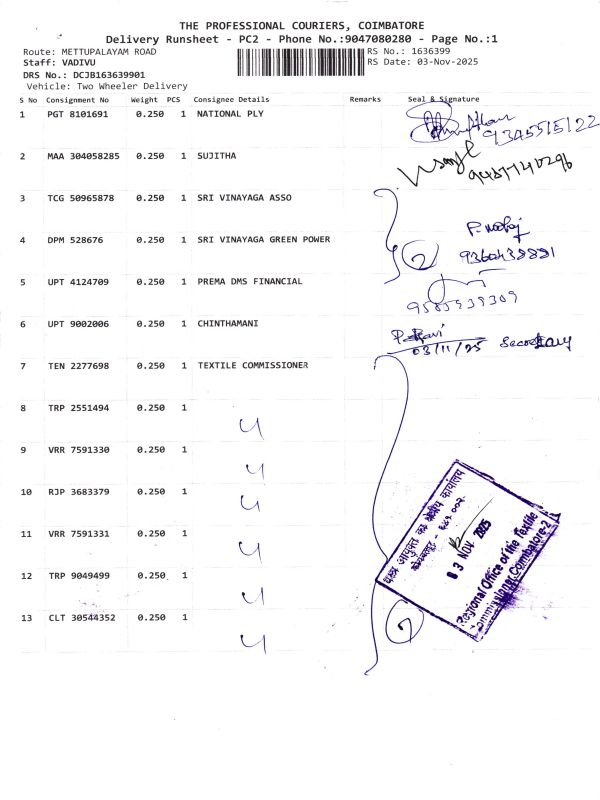 THE PROFESSIONAL COURIERS, COIMBATORE
Delivery Runsheet - PC2 - Phone No.:9047080280 - Page No.:1
Route: METTUPALAYAM ROAD
Staff: VADIVU
DRS No.: DCJB163639901
Vehicle: Two Wheeler Delivery
RS No.: 1636399
RS Date: 03-Nov-2025
S No Consignment No Weight PCS Consignee Details Remarks Seal & Signature
1 PGT 8101691 0.250 1 NATIONAL PLY
9345515122
2 MAA 304058285 0.250 1 SUJITHA
9487740296
3 TCG 50965878 0.250 1 SRI VINAYAGA ASSO
4 DPM 528676 0.250 1 SRI VINAYAGA GREEN POWER
2
9360438881
5 UPT 4124709 0.250 1 PREMA DMS FINANCIAL
6 UPT 9002006 0.250 1 CHINTHAMANI
P. Ravi
03/11/25 Secretary
7 TEN 2277698 0.250 1 TEXTILE COMMISSIONER
8 TRP 2551494 0.250 1
4
9 VRR 7591330 0.250 1
4
10 RJP 3683379 0.250 1
4
11 VRR 7591331 0.250 1
4
12 TRP 9049499 0.250 1
4
13 CLT 30544352 0.250 1
4
7
वस्त्र आयुक्त का क्षेत्रीय कार्यालय
03 NOV 2025
Regional Office of the Textile
Commissioner, Coimbatore-2